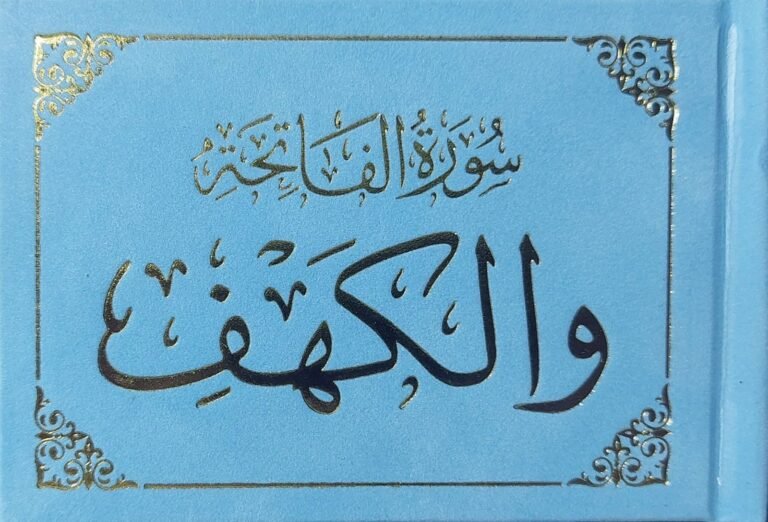 سُورَةُ الفَاتِحَةِ
والكَهْفِ